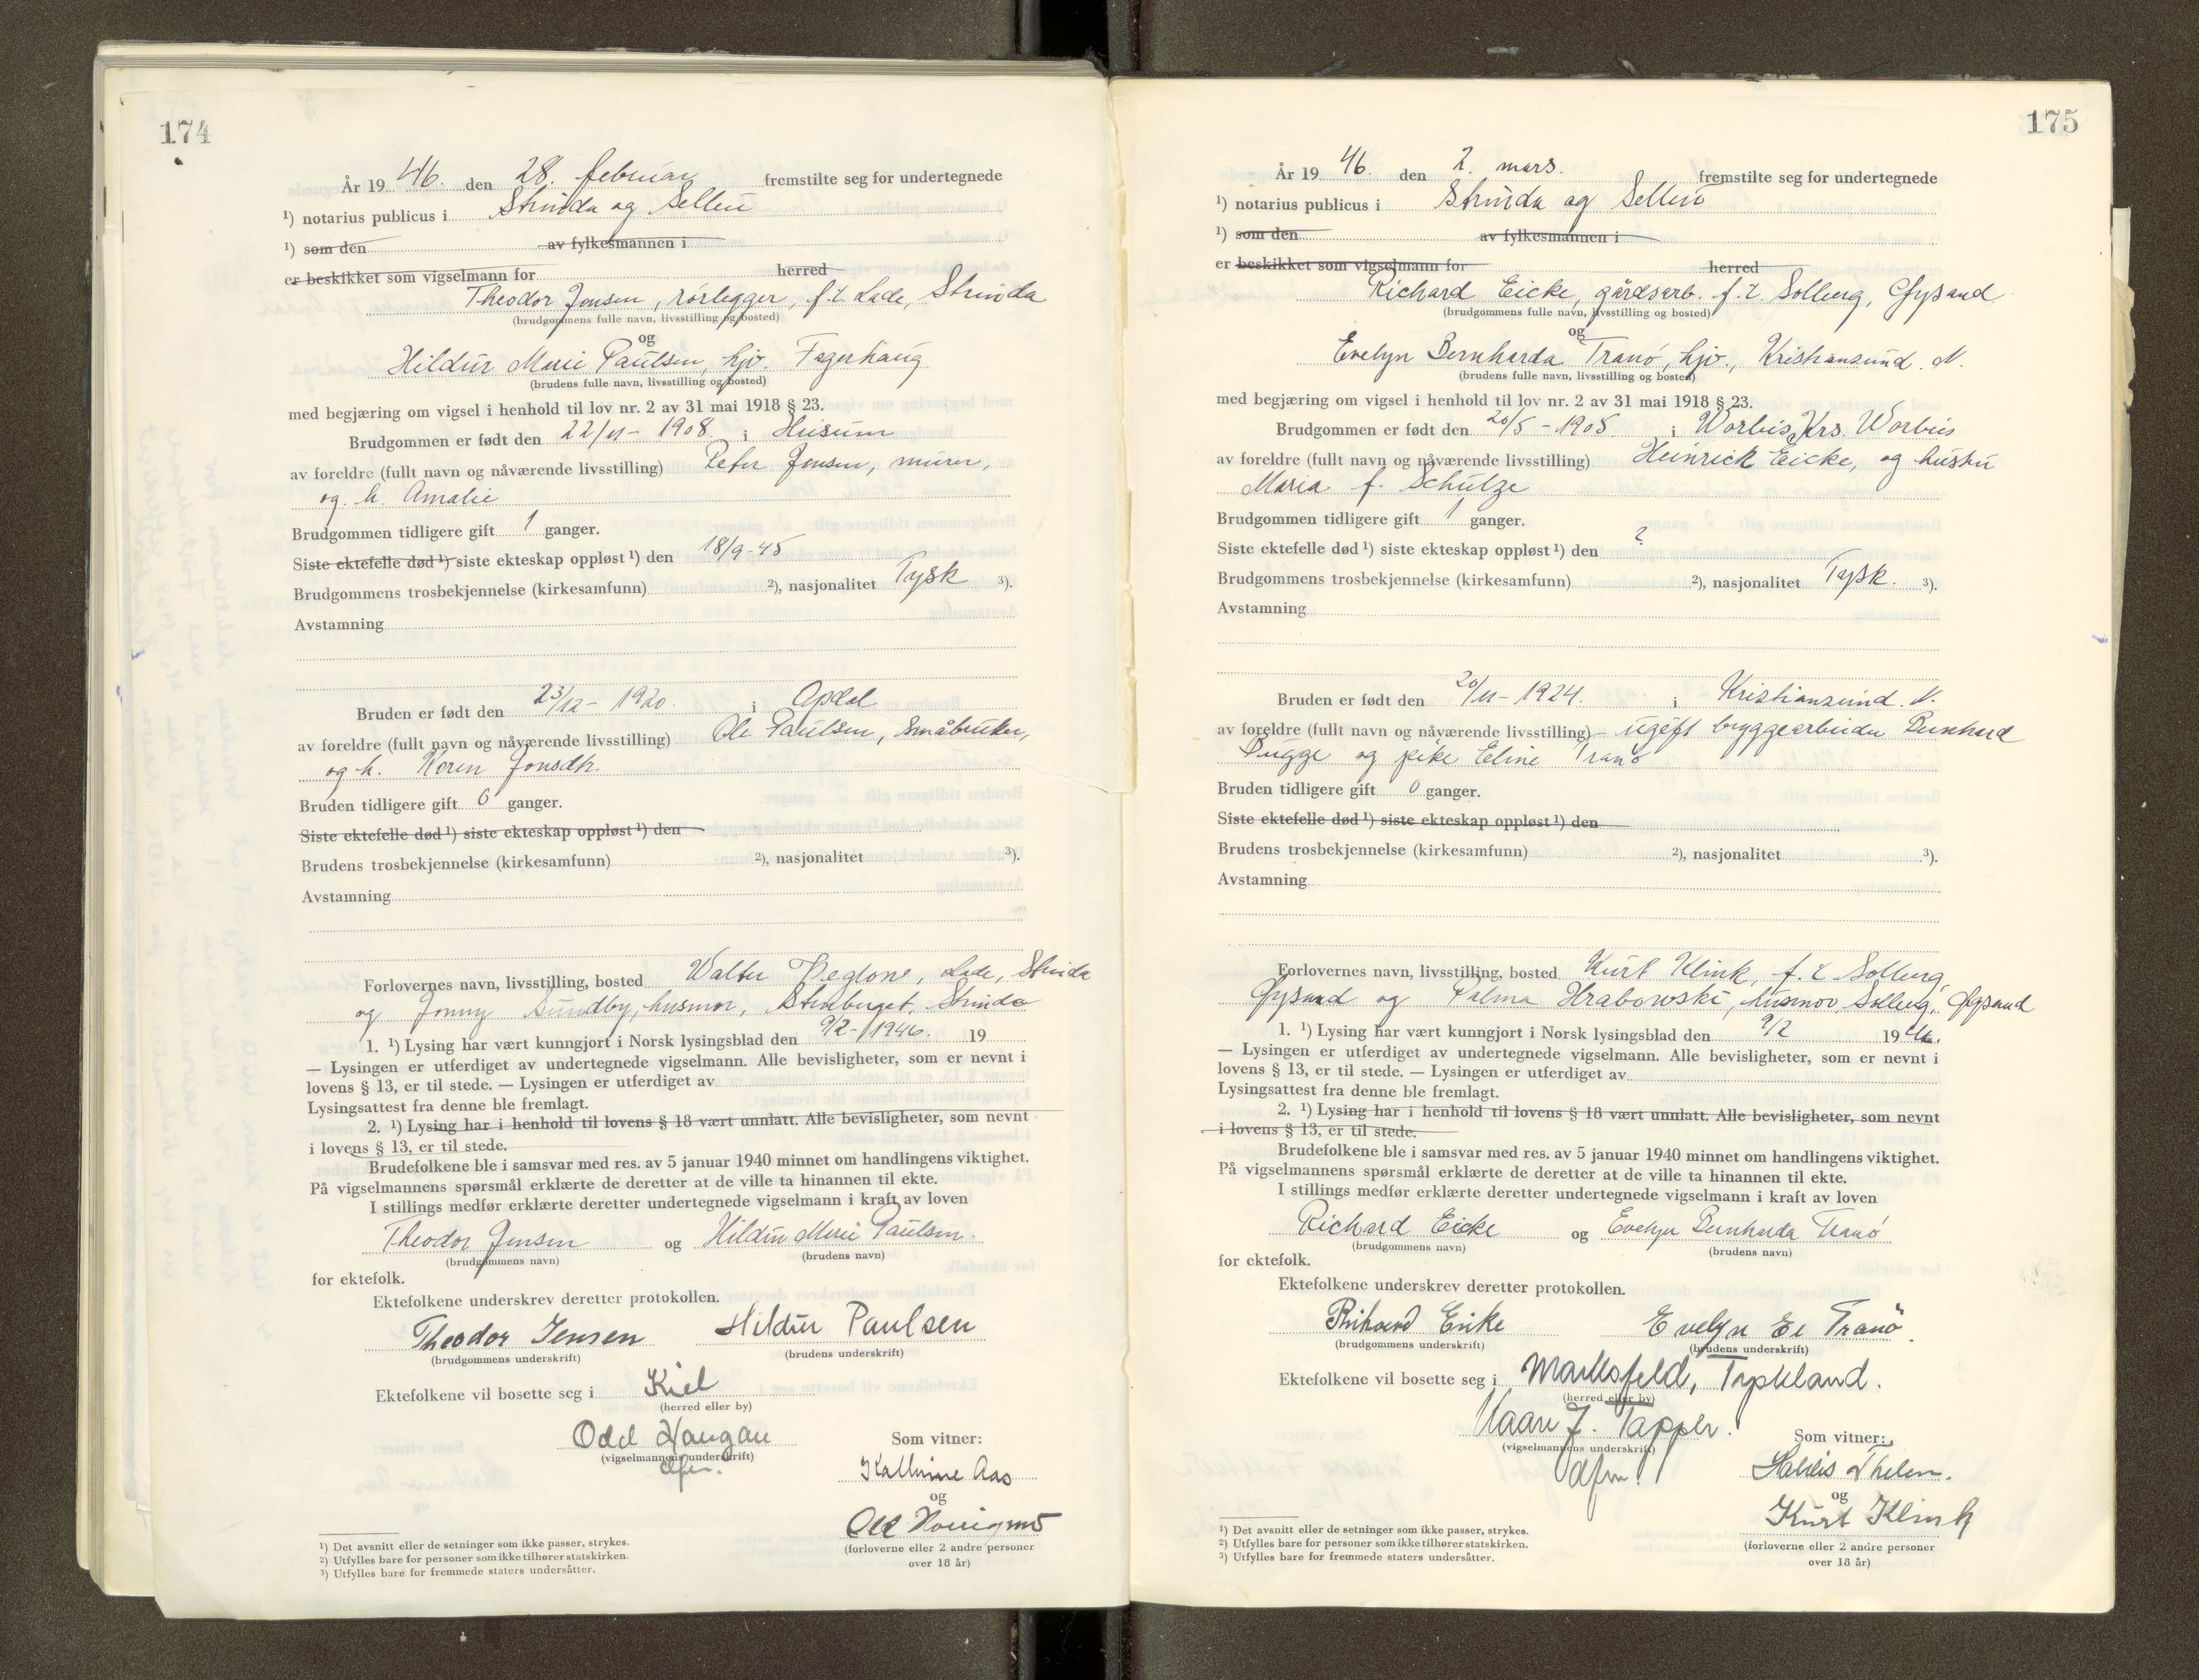 174
År 19 46. den 28. februar fremstilte seg for undertegnede
¹) notarius publicus i Strinda og Selbu
¹) som den av fylkesmannen i
er beskikket som vigselmann for herred
Theodor Jensen, rørlegger, f.t. Lade, Strinda
(brudgommens fulle navn, livsstilling og bosted)
og
Hildur Marie Paulsen, hjv. Fagerhaug
(brudens fulle navn, livsstilling og bosted)
med begjæring om vigsel i henhold til lov nr. 2 av 31 mai 1918 § 23.
Brudgommen er født den 22/11 - 1908. i Husum
av foreldre (fullt navn og nåværende livsstilling) Peter Jensen, murer,
og h. Amalie
Brudgommen tidligere gift 1 ganger.
Siste ektefelle død ¹) siste ekteskap oppløst ¹) den 18/9-45
Brudgommens trosbekjennelse (kirkesamfunn) ²), nasjonalitet Tysk ³).
Avstamning
Bruden er født den 23/12 - 1920. i Opdal
av foreldre (fullt navn og nåværende livsstilling) Ole Paulsen, småbruker,
og h. Karen Jonsdh.
Bruden tidligere gift 0 ganger.
Siste ektefelle død ¹) siste ekteskap oppløst ¹) den
Brudens trosbekjennelse (kirkesamfunn) ²), nasjonalitet ³).
Avstamning
Forlovernes navn, livsstilling, bosted Walter Peglow, Lade, Strinda
og Jonny Sundby, husmor, Strinda
1. ¹) Lysing har vært kunngjort i Norsk lysingsblad den 9/2 - 1946. 19
— Lysingen er utferdiget av undertegnede vigselmann. Alle bevisligheter, som er nevnt i
lovens § 13, er til stede. — Lysingen er utferdiget av
Lysingsattest fra denne ble fremlagt.
2. ¹) Lysing har i henhold til lovens § 18 vært unnlatt. Alle bevisligheter, som nevnt
i lovens § 13, er til stede.
Brudefolkene ble i samsvar med res. av 5 januar 1940 minnet om handlingens viktighet.
På vigselmannens spørsmål erklærte de deretter at de ville ta hinannen til ekte.
I stillings medfør erklærte deretter undertegnede vigselmann i kraft av loven
Theodor Jensen og Hildur Marie Paulsen.
(brudgommens navn) (brudens navn)
for ektefolk.
Ektefolkene underskrev deretter protokollen.
Theodor Jensen Hildur Paulsen
(brudgommens underskrift) (brudens underskrift)
Ektefolkene vil bosette seg i Kiel
(herred eller by)
Odd Haugan Som vitner:
(vigselmannens underskrift)
dfm. Kathrine Aas
og
Odd
(forloverne eller 2 andre personer
over 18 år)
¹) Det avsnitt eller de setninger som ikke passer, strykes.
²) Utfylles bare for personer som ikke tilhører statskirken.
³) Utfylles bare for fremmede staters undersåtter.
175
År 19 46. den 2. mars. fremstilte seg for undertegnede
¹) notarius publicus i Strinda og Selbu
¹) som den av fylkesmannen i
er beskikket som vigselmann for herred
Richard Eicke, gårdsarb. f.t. Solberg, Øysand
(brudgommens fulle navn, livsstilling og bosted)
og
Evelyn Bernharda Tranó, hjv., Kristiansund. N.
(brudens fulle navn, livsstilling og bosted)
med begjæring om vigsel i henhold til lov nr. 2 av 31 mai 1918 § 23.
Brudgommen er født den 20/5 - 1905. i Worbis, Krs. Worbis
av foreldre (fullt navn og nåværende livsstilling) Heinrick Eicke, og hustru
Maria f. Schulze
Brudgommen tidligere gift 1 ganger.
Siste ektefelle død ¹) siste ekteskap oppløst ¹) den ?
Brudgommens trosbekjennelse (kirkesamfunn) ²), nasjonalitet Tysk. ³).
Avstamning
Bruden er født den 20/11 - 1924. i Kristiansund. N.
av foreldre (fullt navn og nåværende livsstilling) - ugift bryggearbeider Bernhard
Bugge og pike Eline Tranó
Bruden tidligere gift 0 ganger.
Siste ektefelle død ¹) siste ekteskap oppløst ¹) den
Brudens trosbekjennelse (kirkesamfunn) ²), nasjonalitet ³).
Avstamning
Forlovernes navn, livsstilling, bosted Kurt Klink, f.t. Solberg,
Øysand og Palma Hrabowski, husmor, Solberg, Øysand
1. ¹) Lysing har vært kunngjort i Norsk lysingsblad den 9/2 19 46.
— Lysingen er utferdiget av undertegnede vigselmann. Alle bevisligheter, som er nevnt i
lovens § 13, er til stede. — Lysingen er utferdiget av
Lysingsattest fra denne ble fremlagt.
2. ¹) Lysing har i henhold til lovens § 18 vært unnlatt. Alle bevisligheter, som nevnt
i lovens § 13, er til stede.
Brudefolkene ble i samsvar med res. av 5 januar 1940 minnet om handlingens viktighet.
På vigselmannens spørsmål erklærte de deretter at de ville ta hinannen til ekte.
I stillings medfør erklærte deretter undertegnede vigselmann i kraft av loven
Richard Eicke og Evelyn Bernharda Tranó
(brudgommens navn) (brudens navn)
for ektefolk.
Ektefolkene underskrev deretter protokollen.
Rikhard Eicke Evelyn Tranö
(brudgommens underskrift) (brudens underskrift)
Ektefolkene vil bosette seg i Marksfeld, Tyskland.
(herred eller by)
Kaare J. Tapper. Som vitner:
(vigselmannens underskrift)
dfm. Thelen.
og
Kurt Klink
(forloverne eller 2 andre personer
over 18 år)
¹) Det avsnitt eller de setninger som ikke passer, strykes.
²) Utfylles bare for personer som ikke tilhører statskirken.
³) Utfylles bare for fremmede staters undersåtter.